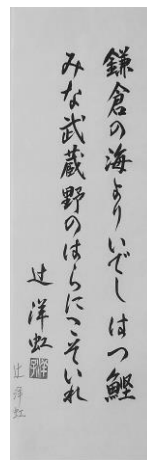 鎌倉の海よりいでしはつ鰹
みな武蔵野のはらにこそいれ
辻洋虹
辻洋虹